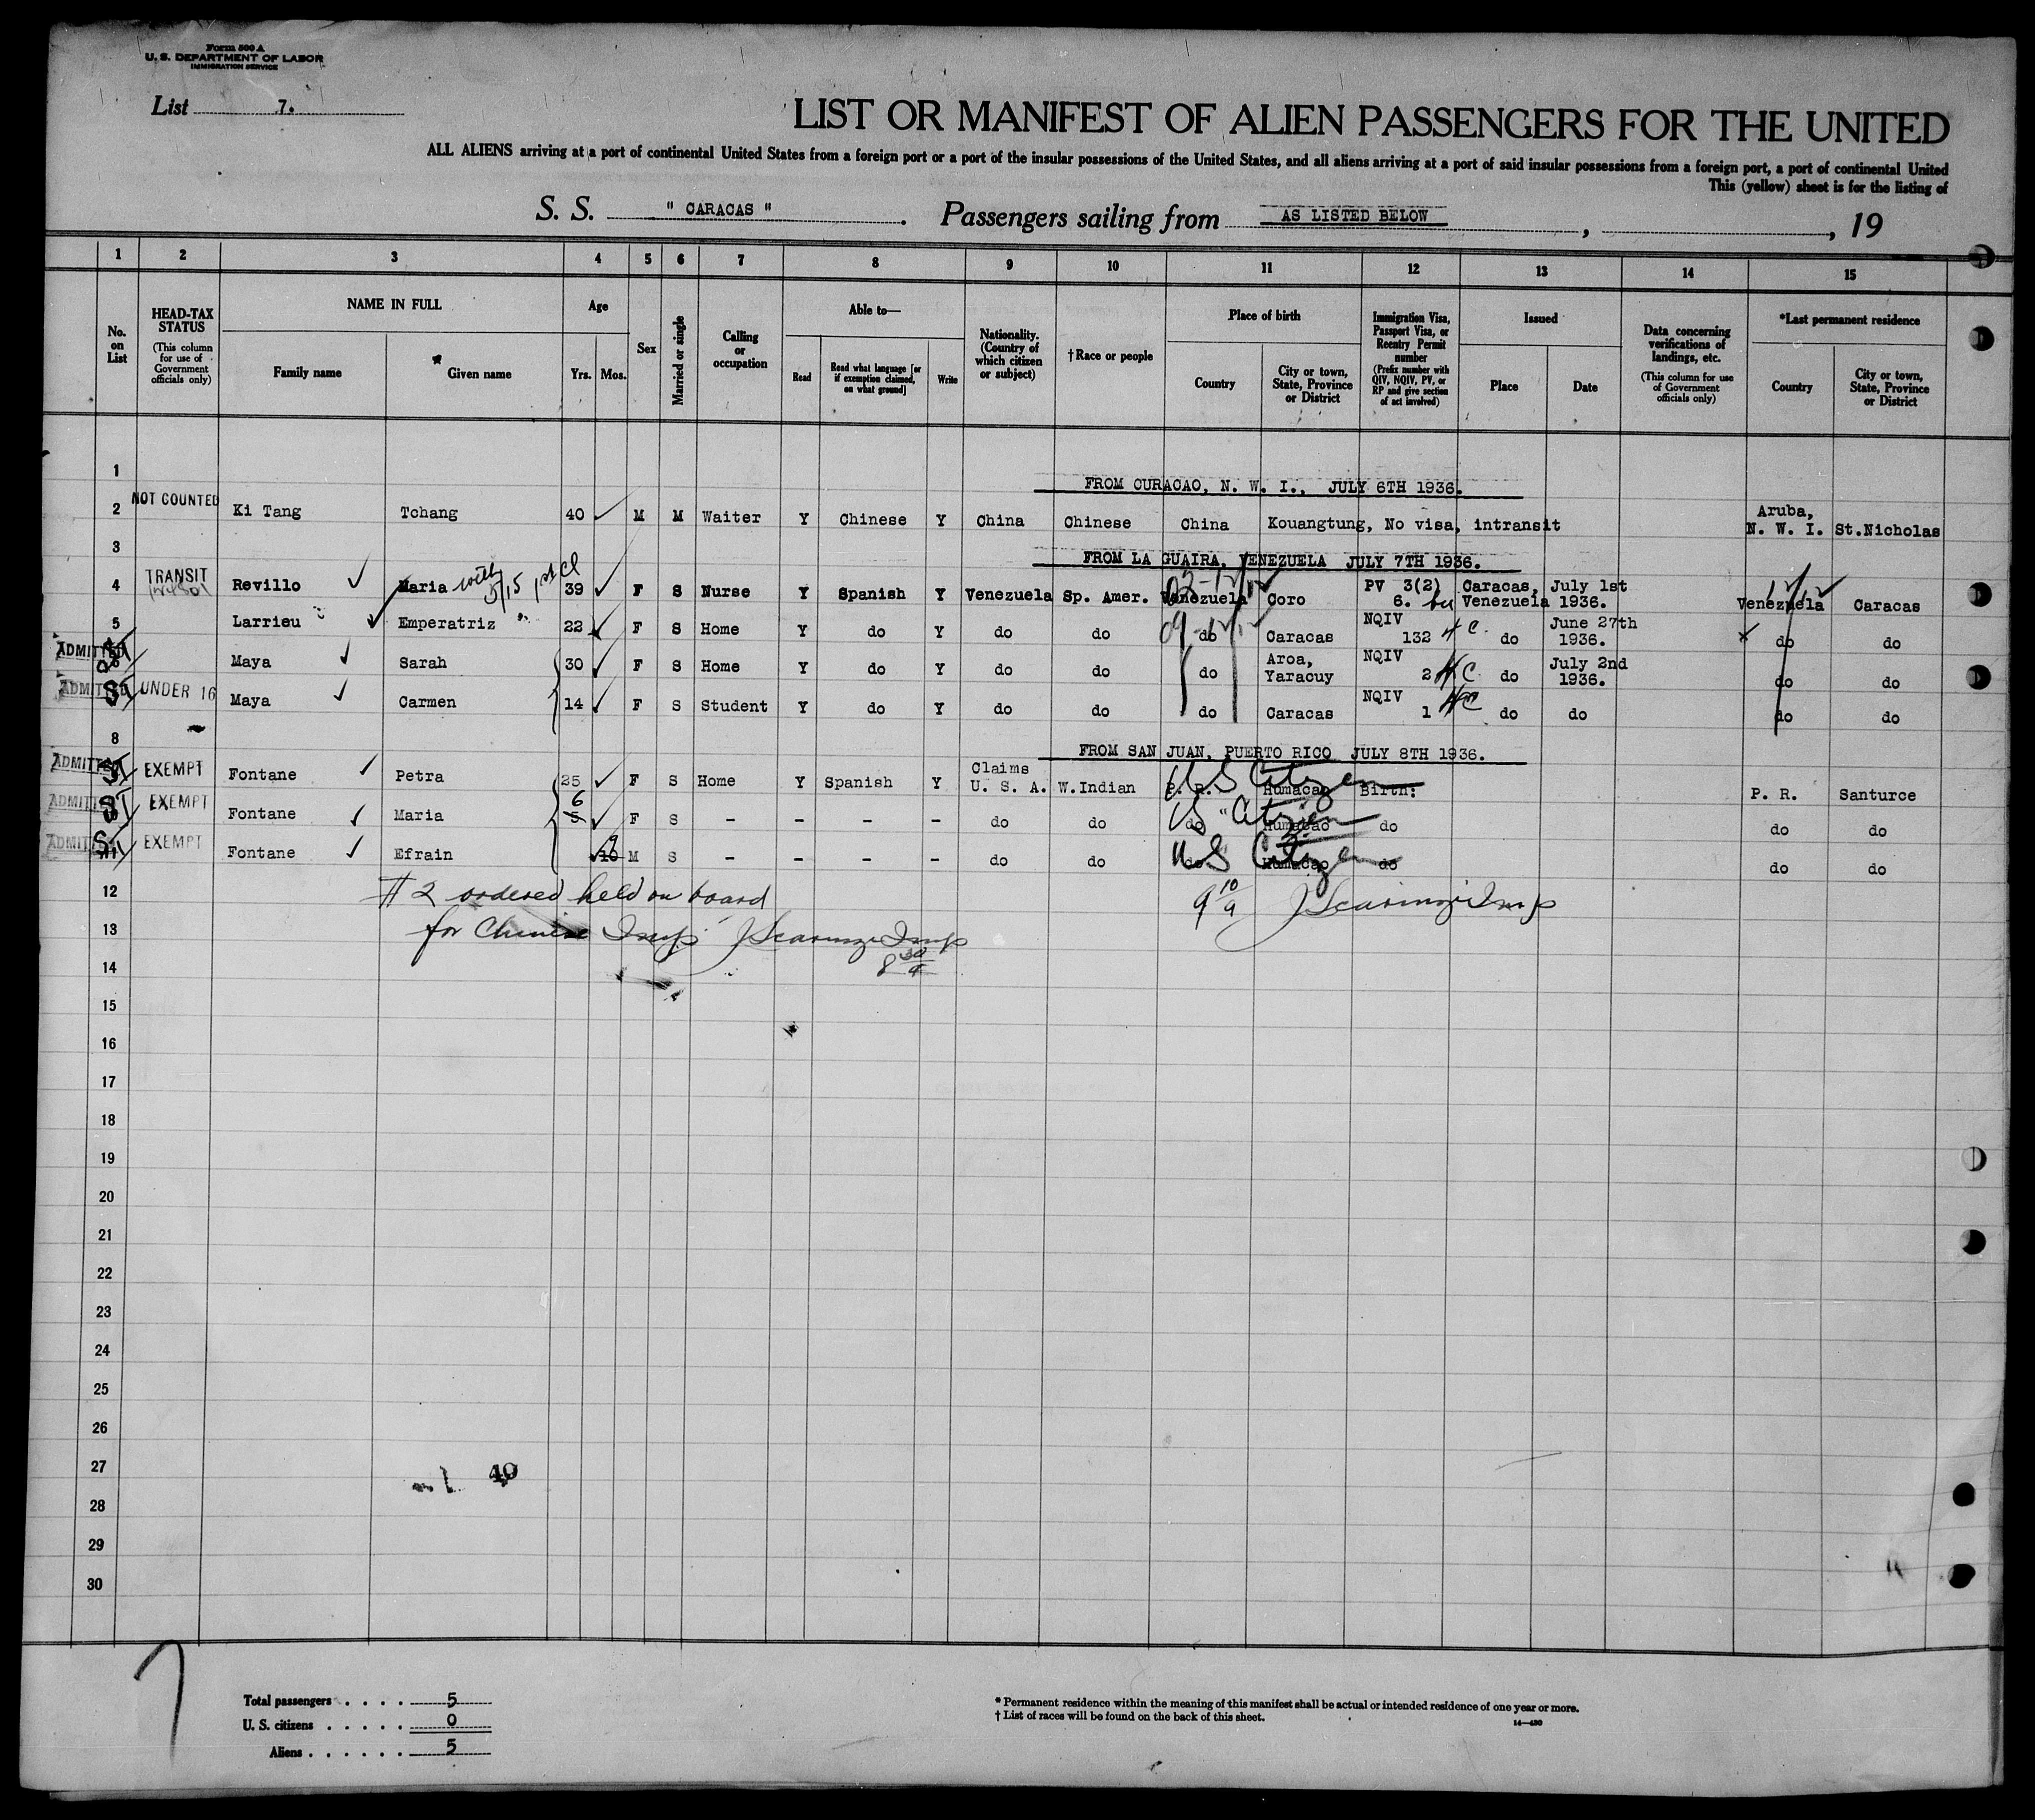 Form 500 A
U. S. DEPARTMENT OF LABOR
IMMIGRATION SERVICE
List 7.
LIST OR MANIFEST OF ALIEN PASSENGERS FOR THE UNITED
ALL ALIENS arriving at a port of continental United States from a foreign port or a port of the insular possessions of the United States, and all aliens arriving at a port of said insular possessions from a foreign port, a port of continental United
This (yellow) sheet is for the listing of
S. S. " CARACAS ". Passengers sailing from AS LISTED BELOW , , 19
1 2 3 4 5 6 7 8 9 10 11 12 13 14 15
No. on List
HEAD-TAX STATUS (This column for use of Government officials only)
NAME IN FULL
Family name Given name
Age
Yrs. Mos.
Sex
Married or single
Calling or occupation
Able to—
Read Read what language [or if exemption claimed, on what ground] Write
Nationality. (Country of which citizen or subject)
†Race or people
Place of birth
Country City or town, State, Province or District
Immigration Visa, Passport Visa, or Reentry Permit number (Prefix number with QIV, NQIV, PV, or RP and give section of act involved)
Issued
Place Date
Data concerning verifications of landings, etc. (This column for use of Government officials only)
*Last permanent residence
Country City or town, State, Province or District
1
FROM CURACAO, N. W. I., JULY 6TH 1936.
2 NOT COUNTED Ki Tang Tchang 40 M M Waiter Y Chinese Y China Chinese China Kouangtung, No visa, intransit Aruba, N. W. I. St.Nicholas
3
FROM LA GUAIRA, VENEZUELA JULY 7TH 1936.
4 TRANSIT Revillo Maria with 5/15 1st cl 39 F S Nurse Y Spanish Y Venezuela Sp. Amer. Venezuela Coro PV 3(2) 6. Caracas, Venezuela July 1st 1936. Venezuela Caracas
5 Larrieu Emperatriz 22 F S Home Y do Y do do do Caracas NQIV 132 do June 27th 1936. do do
ADMITTED Maya Sarah 30 F S Home Y do Y do do do Aroa, Yaracuy NQIV 2 do July 2nd 1936. do do
ADMITTED UNDER 16 Maya Carmen 14 F S Student Y do Y do do do Caracas NQIV 1 do do do do
8
FROM SAN JUAN, PUERTO RICO JULY 8TH 1936.
ADMITTED EXEMPT Fontane Petra 25 F S Home Y Spanish Y Claims U. S. A. W.Indian P. R. Humacao Birth: US Citizen P. R. Santurce
ADMITTED EXEMPT Fontane Maria 5 6 F S - - - - do do do Humacao do US Citizen do do
ADMITTED EXEMPT Fontane Efrain 10 9 M S - - - - do do do Humacao do US Citizen do do
12 # 2 ordered held on board
13 for Chinese Insp
14
15
16
17
18
19
20
21
22
23
24
25
26
27
40
28
29
30
7
Total passengers . . . . 5
U. S. citizens . . . . . 0
Aliens . . . . . . 5
* Permanent residence within the meaning of this manifest shall be actual or intended residence of one year or more.
† List of races will be found on the back of this sheet.
14—430